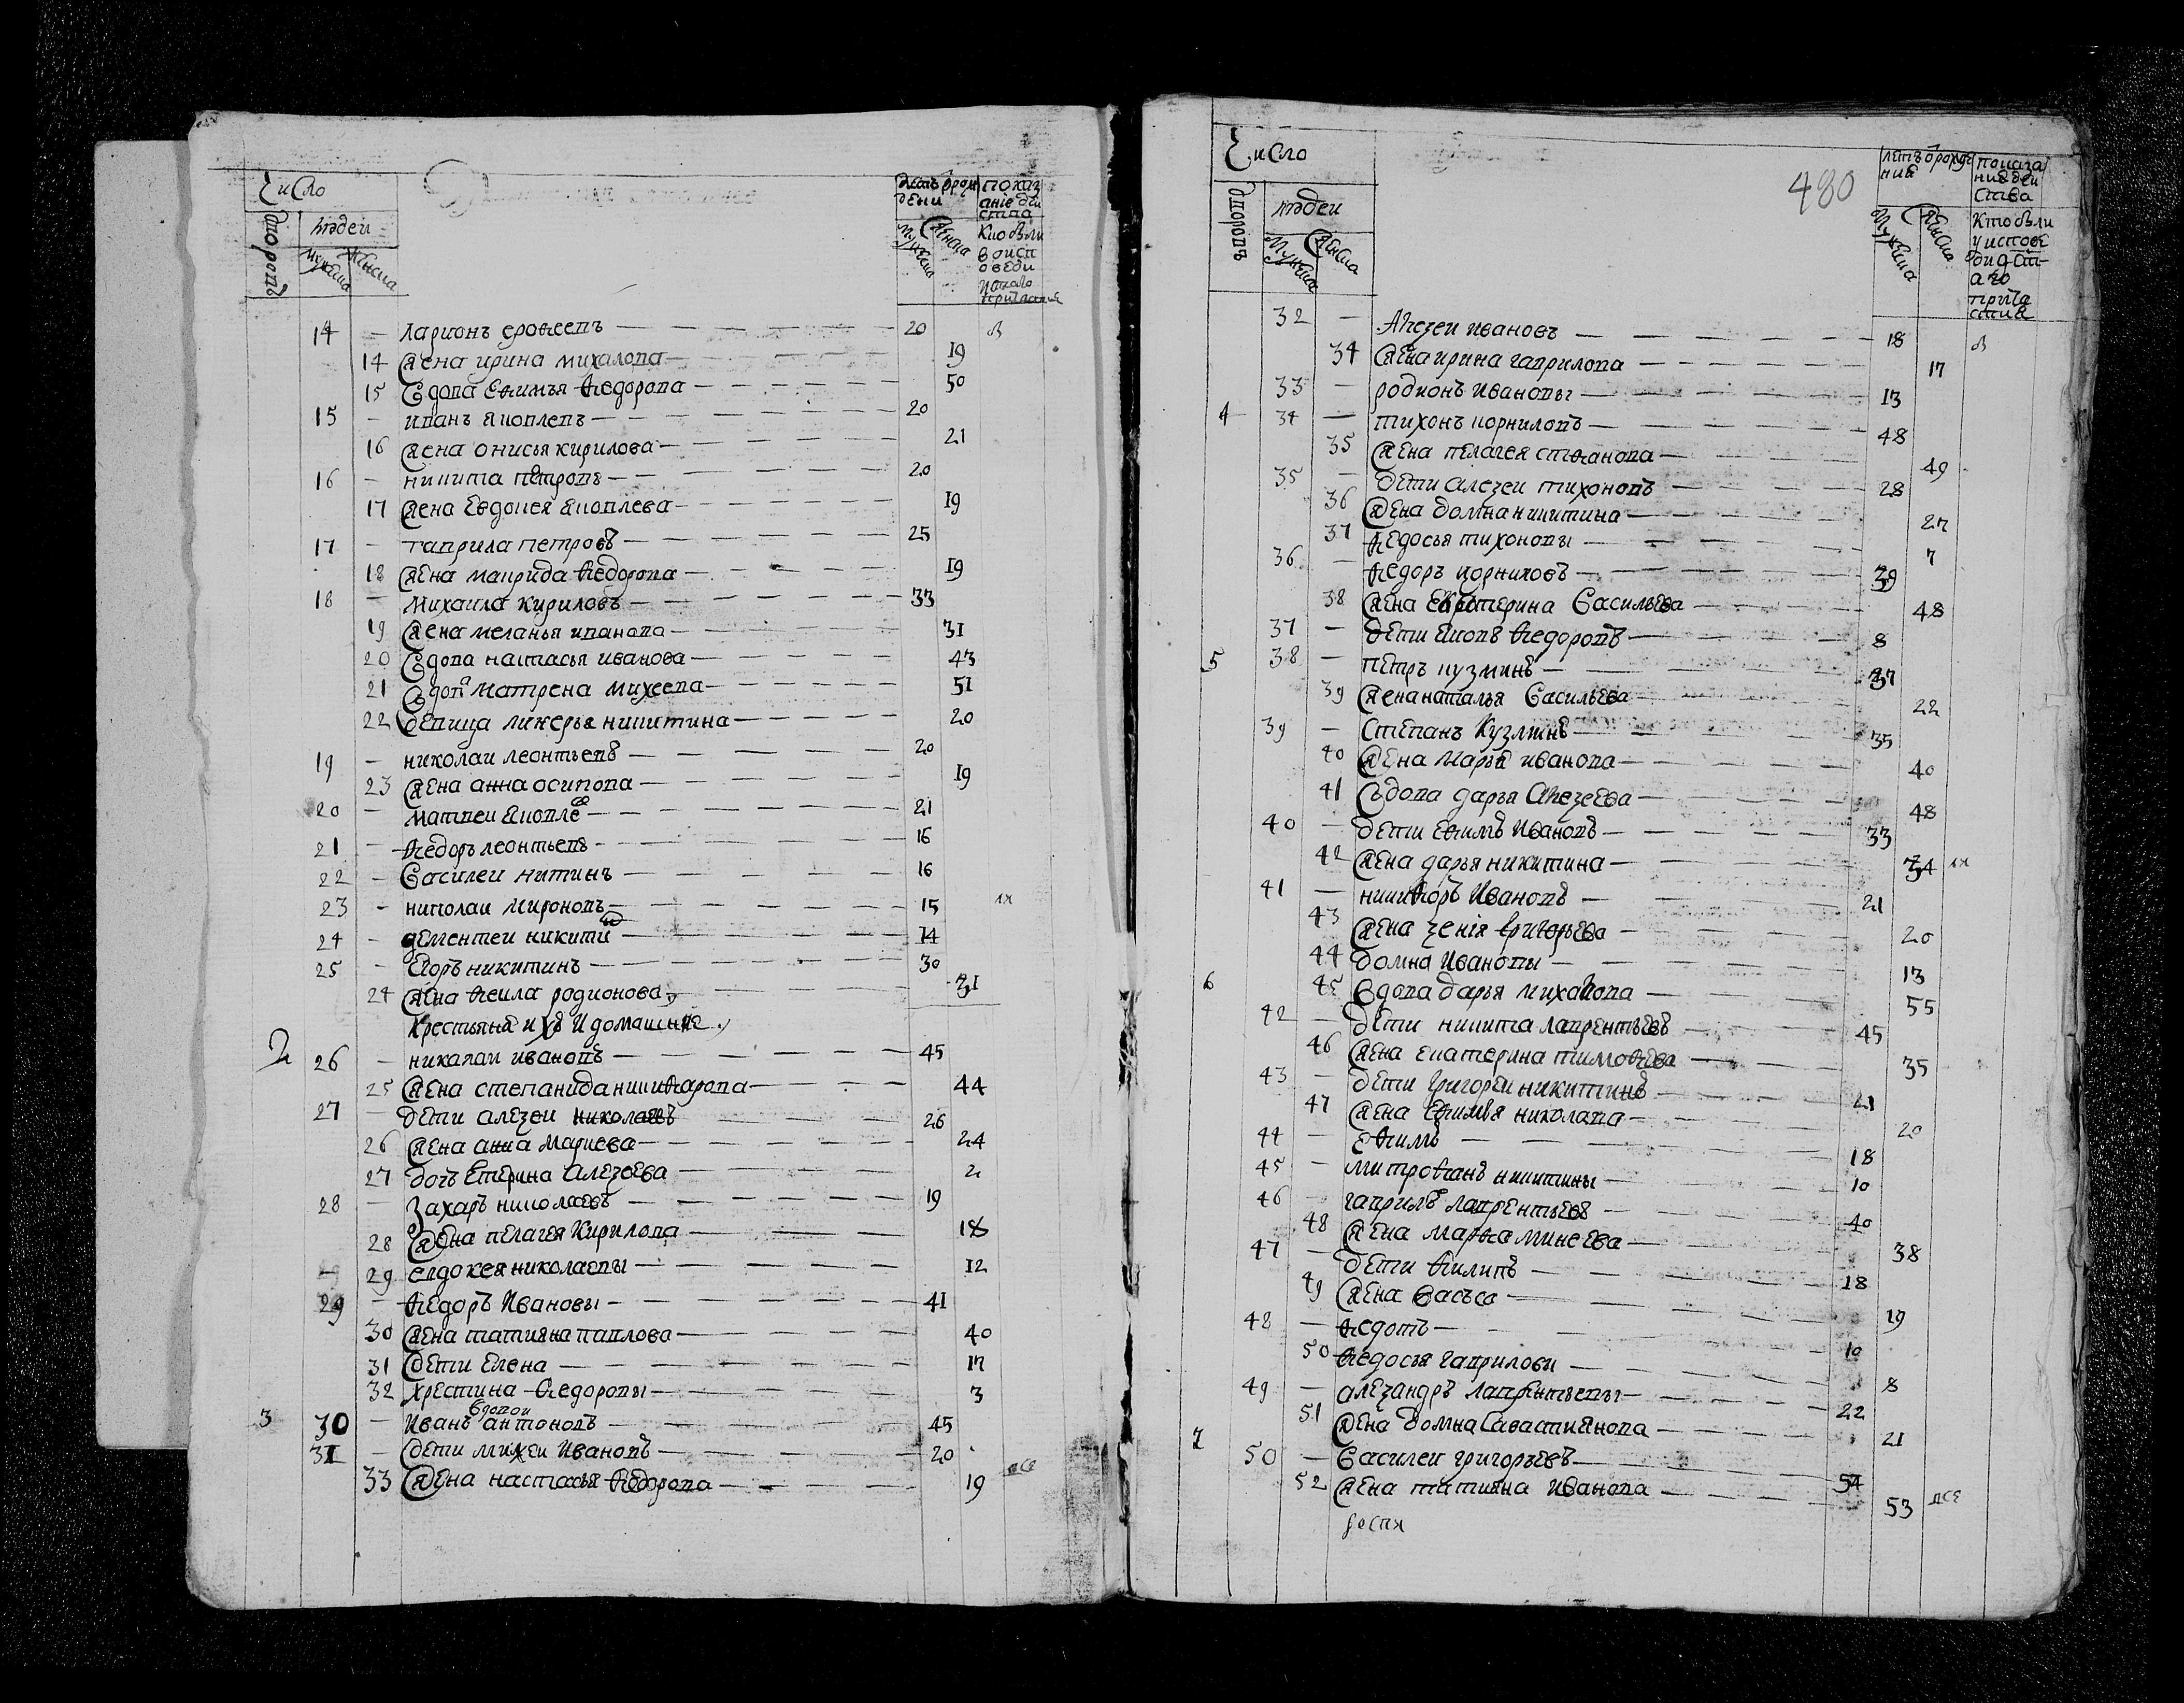 Число
дворовъ
людеи
мужеска
женска
летъ отрожде
дении
мужеска
женска
показ
ание деи
ства
Кто были
в исп
оведи
14 — ларионъ ерофеевъ — 20
14 жена ирина михалова — 19
15 вдова ефимья федорова — 50
15 — иванъ яковлевъ — 20
16 жена онисья кирилова — 21
16 — никита петровъ — 20
17 жена евдокея яковлева — 19
17 — гаврила петровъ — 25
18 жена маврида федорова — 19
18 — михаила кириловъ — 33
19 жена меланья иванова — 31
20 вдова настасья иванова — 43
21 вдова матрена михеева — 51
22 девица лукерья никитина — 20
19 — николаи леонтьевъ — 20
23 жена анна осипова — 19
20 — матвеи яковлевъ — 21
21 — федоръ леонтьевъ — 16
22 — василеи нитинъ — 16
23 — николаи мироновъ — 15
24 — дементеи никитинъ — 14
25 — егоръ никитинъ — 30
24 жена фекла родионова — 31
крестьяня ихъ и домашние
2 26 — никалаи ивановъ — 45
25 жена степанида никифарова — 44
27 — дети алезеи николаевъ — 26
26 жена анна мариева — 24
27 дочь етерина алезеева — 2
28 — захаръ николаевъ — 19
28 жена пелагея кирилова — 18
29 евдокея николаевы — 12
29 — федоръ ивановы — 41
30 жена татияна павлова — 40
31 дети елена — 17
32 хрестина федоровы — 3
3 30 — иванъ антоновъ вдовои — 45
31 — дети михеи ивановъ — 20
33 жена настасья федорова — 19 все
480
Число
дворовъ
людеи
мужеска
женска
летъ отрожде
ния
мужеска
женска
показа
ние деи
ства
Кто были
у испове
ди и свя
аго
прича
стия
32 — алезеи ивановъ — 18
34 жена ирина гаврилова — 17
33 — родионъ ивановы — 13
4 34 — тихонъ корниловъ — 48
35 жена пелагея стефанова — 49
35 — дети алезеи тихоновъ — 28
36 жена домна никитина — 27
37 федосья тихоновы — 7
36 — федоръ корниловъ — 39
38 жена екатерина васильева — 48
37 — дети яковъ федоровъ — 8
5 38 — петръ кузминъ — 37
39 жена наталья васильева — 22
39 — степанъ кузминъ — 35
40 жена марья иванова — 40
41 вдова дарья алезеева — 48
40 — дети ефимъ ивановъ — 33
42 жена дарья никитина — 34
41 — никифоръ ивановъ — 21
43 жена зения григорьева — 20
44 домна ивановы — 13
6 45 вдова дарья михалова — 55
42 — дети никита лаврентьевъ — 45
46 жена екатерина тимофеева — 35
43 — дети григореи никитинъ — 21
47 жена ефимья николава — 20
44 — ефимъ — 18
45 — митрофанъ никитины — 10
46 — гаврилъ лаврентьевъ — 40
48 жена марья минеева — 38
47 — дети филипъ — 18
49 жена васъса — 19
48 — федотъ — 10
50 федосья гавриловы — 8
49 — алезандръ лаврентьевы — 22
51 жена домна савастиянова — 21
7 50 — василеи григорьевъ — 54
52 жена татияна иванова — 53 все